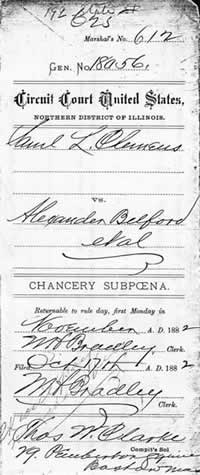 Marshal's No. 612
GEN. No. 18056.
Circuit Court United States,
NORTHERN DISTRICT OF ILLINOIS.
Saml L. Clemens
VS.
Alexander Belford
et al
CHANCERY SUBPŒNA.
Returnable to rule day, first Monday in
November A. D. 1882
Wm H Bradley Clerk.
Filed Oct 17th A. D. 1882
Wm H Bradley
Clerk.
Thos W. Clarke
Complt's Sol
29 Pemberton Square
Boston Mass